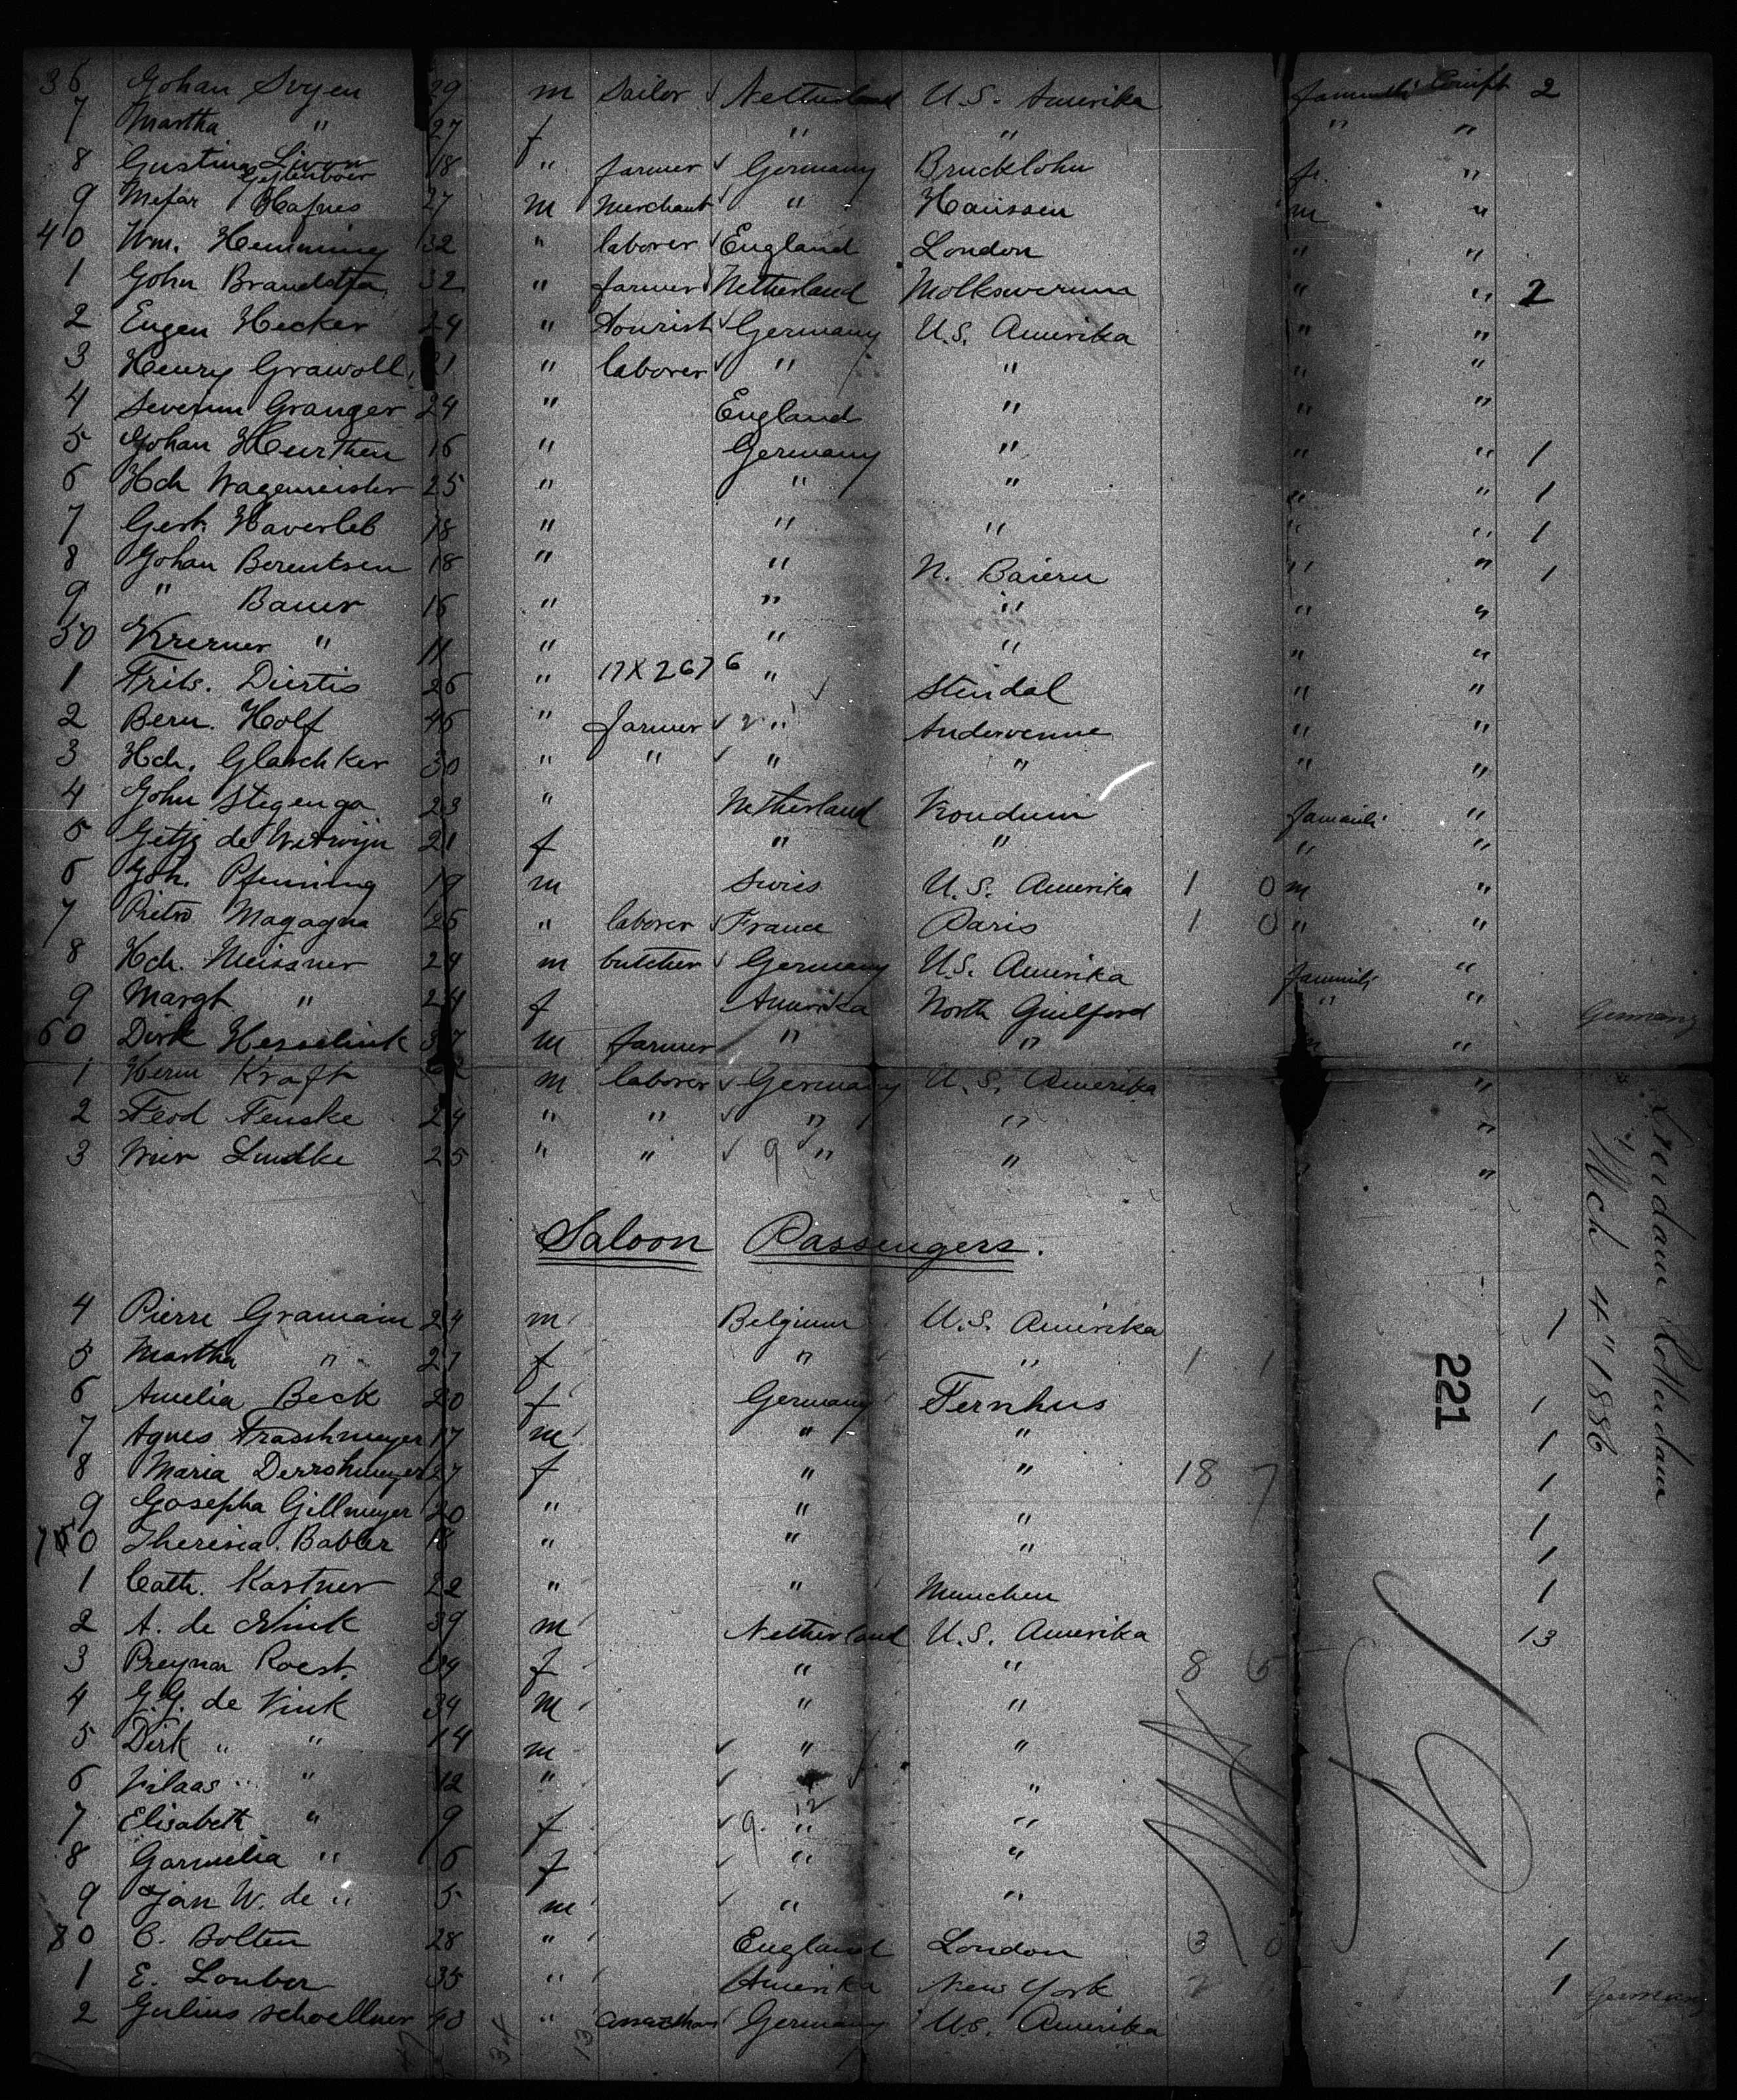 36 Johan Svyen 29 m Sailor Netherland U.S. Amerika 2
7 Martha " 27 f " " " "
8 Gustina 18 " farmer Germany Brucklohn "
9 Hafnes 27 m Merchant " Haussen m "
40 Wm. Hemming 32 " laborer England London " "
1 John 32 " farmer Netherland Molkwerum " " 2
2 Eugen Hecker 24 " tourist Germany U.S. Amerika " "
3 Henry Grawoll " laborer " " " "
4 Severin Granger 24 " England " " "
5 Johan Heurthen 16 " Germany " " " 1
6 Hch Wagemeister 25 " " " " " 1
7 Gerh. Haverleb 18 " " " " " 1
8 Johan Berentsen 18 " " N. Baiern " " 1
9 " Bauer 16 " " " " "
50 " 11 " " " " "
1 Frits. Diertis 26 " 17X2676 " Stendal " "
2 Bern. Holf 46 " farmer 2 " Andervenne " "
3 Hch. Glaschker 30 " " " " " "
4 John Stegenga 23 " Netherland Koudum "
5 Getje de 21 f " " " "
6 Joh. Pfenning 19 m Swiss U.S. Amerika 1 0 m "
7 Pietro Magagna 26 " laborer France Paris 1 0 " "
8 Hch. Meissner 24 m butcher Germany U.S. Amerika "
9 Margt " 24 f Amerika North Guilford " "
Germany
60 Dirk Hesselink 37 m farmer " " m "
1 Herm Kraft m laborer Germany U.S. Amerika "
2 Feod Fenske 24 " " " " "
3 Lindke 25 " " 9 " " "
Saloon Passengers.
4 Pierre Gramain 24 m Belgium U.S. Amerika 1
5 Martha " 27 f " " 1 1
6 Amelia Beck 20 f Germany Fernhus 1
7 Agnes Fraschmeyer 17 m " " 1
8 Maria 27 f " " 18 7 1
9 Josepha Gillmeyer 20 " " " 1
70 Theresia Babler 18 " " " 1
1 Cath. Kastner 22 " " Munchen 1
2 A. de Vink 39 m Netherland U.S. Amerika 13
3 Preyna Roest f " " 8 5
4 J.J. de Vink 34 m " "
5 Dirk " " 14 m " "
6 Klaas " " 12 " "
7 Elisabeth " 9 f 9 " "
8 Gornelia " 6 f " "
9 Jan W. de " 5 m " "
80 C. Bolten 28 " England London 3 0 1
1 E. Louber 35 " Amerika New York 2 1
Germany
2 Julius Schoellner 43 " Germany U.S. Amerika
34
13
Rotterdam
Mch 4" 1886
221